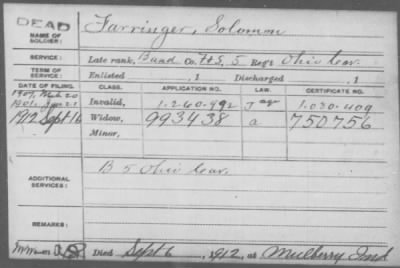 DEAD
NAME OF SOLDIER: Farringer, Solomon
SERVICE: Late rank, Band Co. F&S, 5 Reg't Ohio Cav.
TERM OF SERVICE: Enlisted , 1 Discharged , 1
DATE OF FILING. CLASS. APPLICATION NO. LAW. CERTIFICATE NO.
1901, Invalid, 1.260.492 1.030.409
1912 Sept 16 Widow, 993438 a 750756
Minor,
ADDITIONAL SERVICES: B 5 Ohio Cav.
REMARKS:
Died Sept 6, 1912, at Mulberry Ind